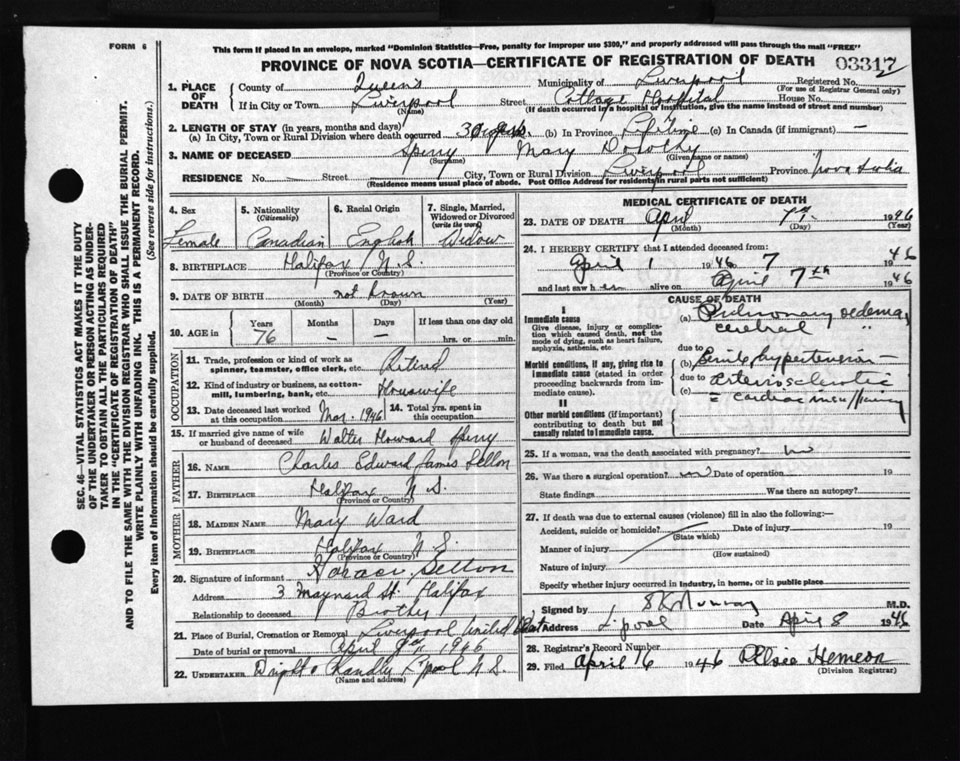 FORM 6
This form if placed in an envelope, marked "Dominion Statistics—Free, penalty for improper use $300," and properly addressed will pass through the mail "FREE"
PROVINCE OF NOVA SCOTIA—CERTIFICATE OF REGISTRATION OF DEATH
03317
1. PLACE OF DEATH
County of Queens Municipality of Liverpool Registered No.
(For use of Registrar General only)
If in City or Town Liverpool Street Cottage Hospital House No.
(Name) (If death occurred in a hospital or institution, give the name instead of street and number)
2. LENGTH OF STAY (in years, months and days)
(a) In City, Town or Rural Division where death occurred 30 yrs. (b) In Province Life Time (c) In Canada (if immigrant) —
3. NAME OF DECEASED Sperry Mary Dorothy
(Surname) (Given name or names)
RESIDENCE No. — Street City, Town or Rural Division Liverpool Province Nova Scotia
(Residence means usual place of abode. Post Office Address for residents in rural parts not sufficient)
4. Sex 5. Nationality (Citizenship) 6. Racial Origin 7. Single, Married, Widowed or Divorced (write the word)
Female Canadian English Widow
8. BIRTHPLACE Halifax N.S.
(Province or Country)
9. DATE OF BIRTH not known
(Month) (Day) (Year)
10. AGE in Years Months Days If less than one day old
76 — — hrs. or min.
OCCUPATION
11. Trade, profession or kind of work as spinner, teamster, office clerk, etc. Retired
12. Kind of industry or business, as cotton-mill, lumbering, bank, etc. Housewife
13. Date deceased last worked at this occupation Mar. 1946 14. Total yrs. spent in this occupation
15. If married give name of wife or husband of deceased Walter Howard Sperry
FATHER
16. NAME Charles Edward James Sellon
17. BIRTHPLACE Halifax N.S.
(Province or Country)
MOTHER
18. MAIDEN NAME Mary Ward
19. BIRTHPLACE Halifax N.S.
(Province or Country)
20. Signature of informant Horace Sellon
Address 3 Maynard St. Halifax
Relationship to deceased Brother
21. Place of Burial, Cremation or Removal Liverpool United
Date of burial or removal April 9th 1946
22. UNDERTAKER Wright & Chandler L'pool N.S.
(Name and address)
MEDICAL CERTIFICATE OF DEATH
23. DATE OF DEATH April 7th 1946
(Month) (Day) (Year)
24. I HEREBY CERTIFY that I attended deceased from:
April 1 1946 7 1946
and last saw her alive on April 7th 1946
CAUSE OF DEATH
I
Immediate cause
Give disease, injury or complication which caused death, not the mode of dying, such as heart failure, asphyxia, asthenia, etc.
(a) Pulmonary oedema
cerebral "
due to
Morbid conditions, if any, giving rise to immediate cause (stated in order proceeding backwards from immediate cause).
(b) Senile hypertension —
due to arteriosclerotic
(c)
II
Other morbid conditions (if important) contributing to death but not causally related to immediate cause.
25. If a woman, was the death associated with pregnancy? no
26. Was there a surgical operation? no Date of operation 19
State findings Was there an autopsy?
27. If death was due to external causes (violence) fill in also the following:—
Accident, suicide or homicide? Date of injury 19
(State which)
Manner of injury
(How sustained)
Nature of injury
Specify whether injury occurred in industry, in home, or in public place
Signed by M.D.
Address L'pool Date April 8 1946
28. Registrar's Record Number
29. Filed April 16 1946 Hemeon
(Division Registrar)
SEC. 46—VITAL STATISTICS ACT MAKES IT THE DUTY
OF THE UNDERTAKER OR PERSON ACTING AS UNDER-
TAKER TO OBTAIN ALL THE PARTICULARS REQUIRED
IN THE "CERTIFICATE OF REGISTRATION OF DEATH"
AND TO FILE THE SAME WITH THE DIVISION REGISTRAR WHO SHALL ISSUE THE BURIAL PERMIT.
WRITE PLAINLY WITH UNFADING INK. THIS IS A PERMANENT RECORD.
Every item of Information should be carefully supplied. (See reverse side for instructions.)